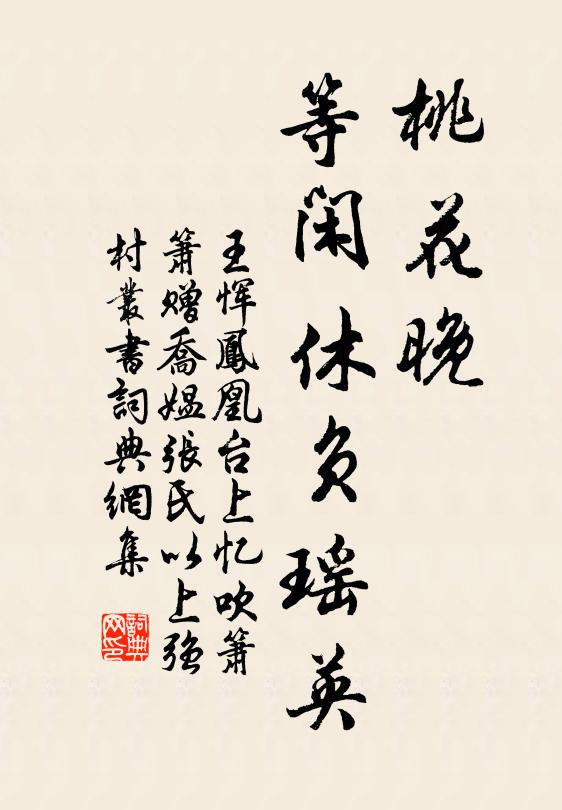 桃花晚
等闲休负瑶英
王恽鳳凰台上忆吹箫
箫赠喬媪張氏以上強
村叢書詞典網集
詞典
网印